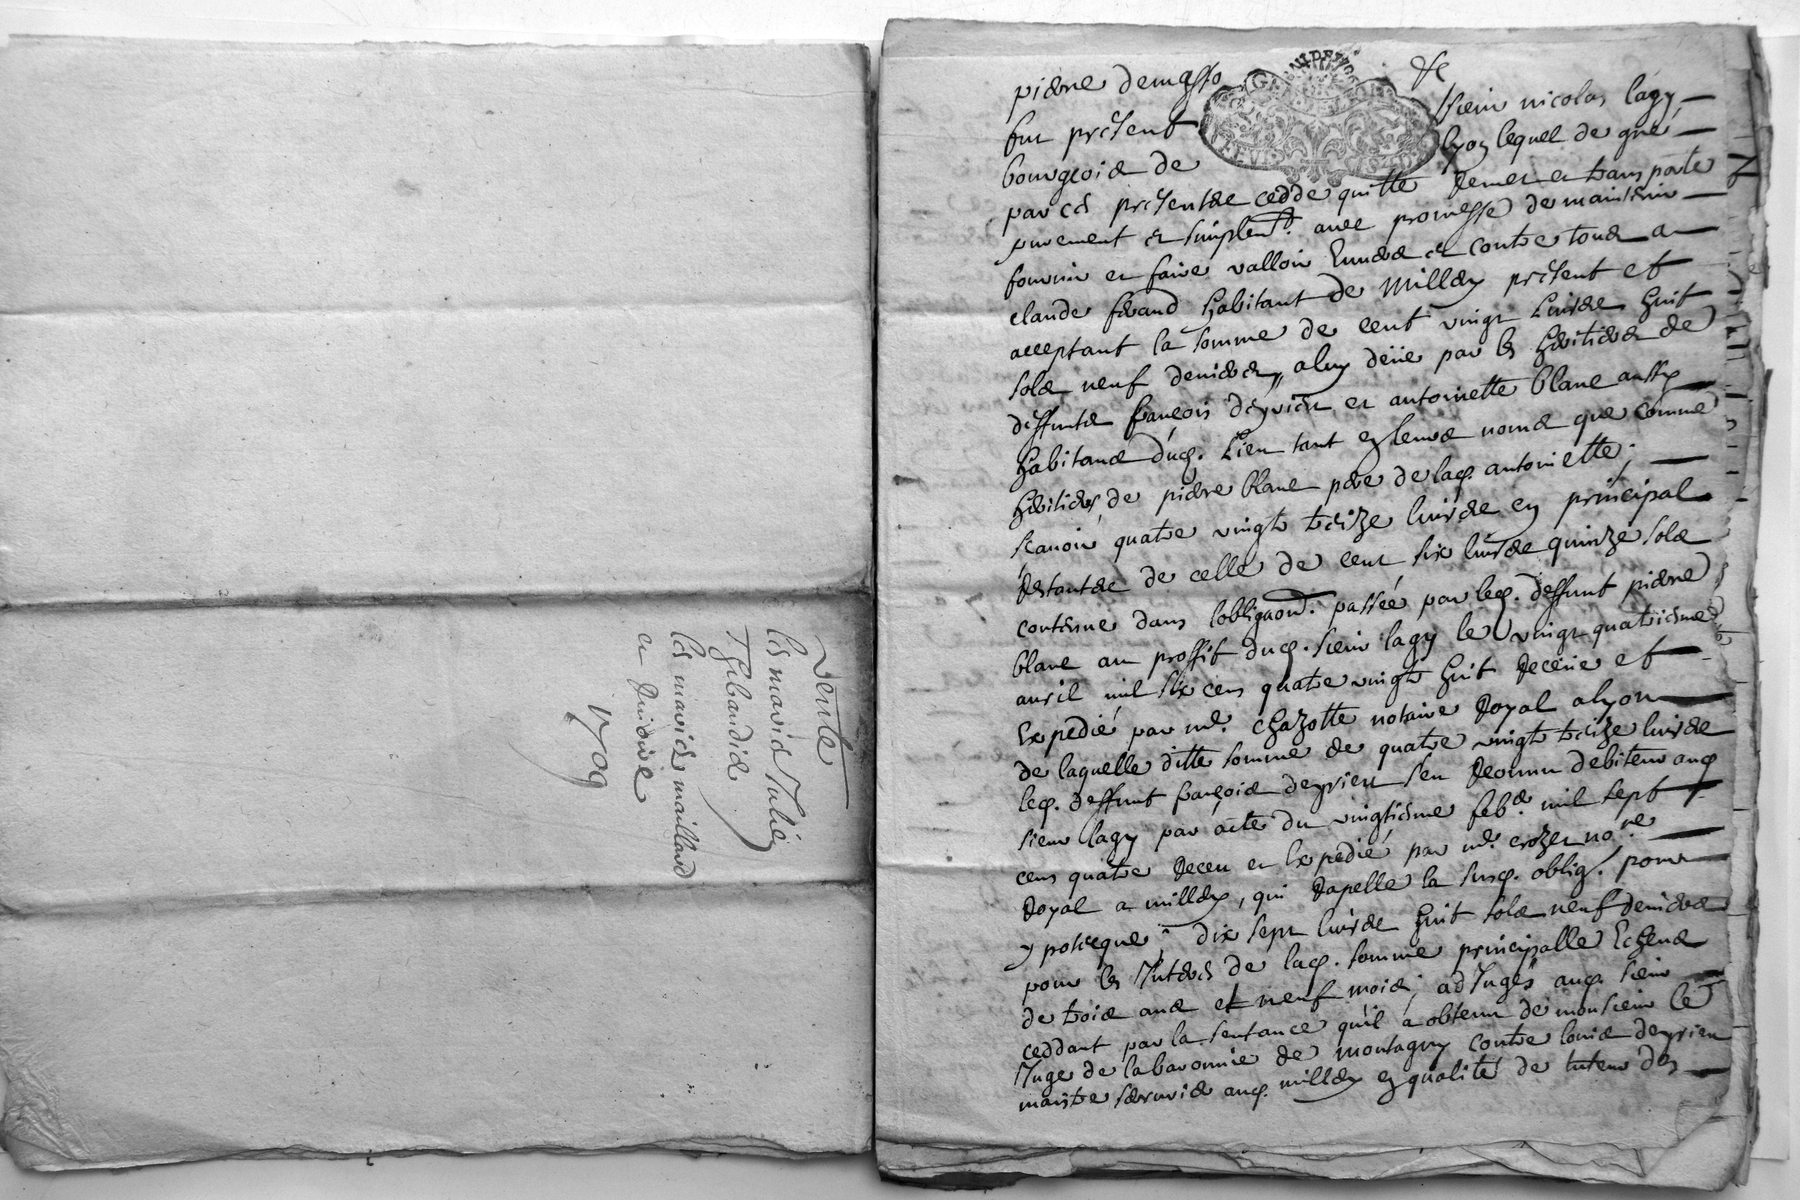 vente
les mariés Jullien
Thibaudier
les mariés maillard
et
1709
pierre demasso &c
fut présent sieur nicolas lagy
bourgeois de lyon lequel de gré
par ces présentes cedde quitte remet et transporte
purement et simplemt. avec promesse de maintenir
fournir et faire valloir envers et contre tous a
claude férand habitant de Millery présent et
acceptant la somme de cent vingt livres huit
sols neuf deniers, a luy deüe par les héritiers de
deffunts françois deyrieu et antoinette blanc aussy
habitans dud. Lieu tant en leurs noms que comme
héritiers de pierre blanc père de lad. antoinette;
scavoir quatre vingts treize livres en principal
restantes de celle de cent six livres quinze sols
contenue dans lobligaon. passée par led. deffunt pierre
blanc au proffit dud. sieur lagy le vingt quatriesme
auril mil six cens quatre vingts huit receüe et
Expedié par me. chazotte notaire Royal a lyon
de laquelle ditte somme de quatre vingts treize livres
led. deffunt françois deyrieu sen reconnu debiteur aud
sieur lagy par acte du vingtiesme feb. mil sept
cens quatre receu et Expedié par me. crozet nore.
Royal a millery, qui rapelle la susd. oblig. pour
ypotecque; dix sept livres huit sols neuf deniers
pour les Interets de lad. somme principalle Echeus
de trois ans et neuf mois; adjugés aud. sieur
ceddant par la sentance quil a obtenu de monsieur le
Juge de la baronnie de montagny contre louis deyrieu
maistre serrurier aud. millery en qualité de tuteur des